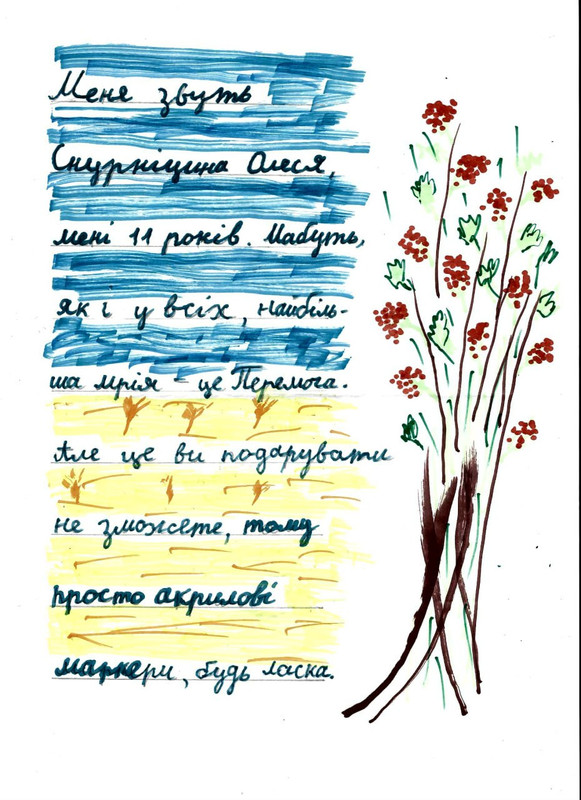 Мене звуть
Снурніцина Олеся,
мені 11 років. Мабуть,
як і у всіх, найбіль-
ша мрія – це Перемога.
Але це ви подарувати
не зможете, тому
просто акрилові
маркери, будь ласка.